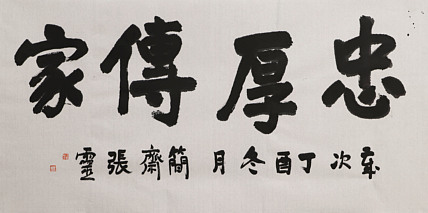 忠厚傳家
歲次丁酉冬月簡齋張靈